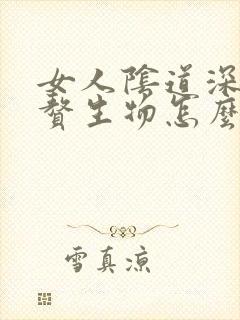 女人陰道深
贅生物怎麼
雪真涼